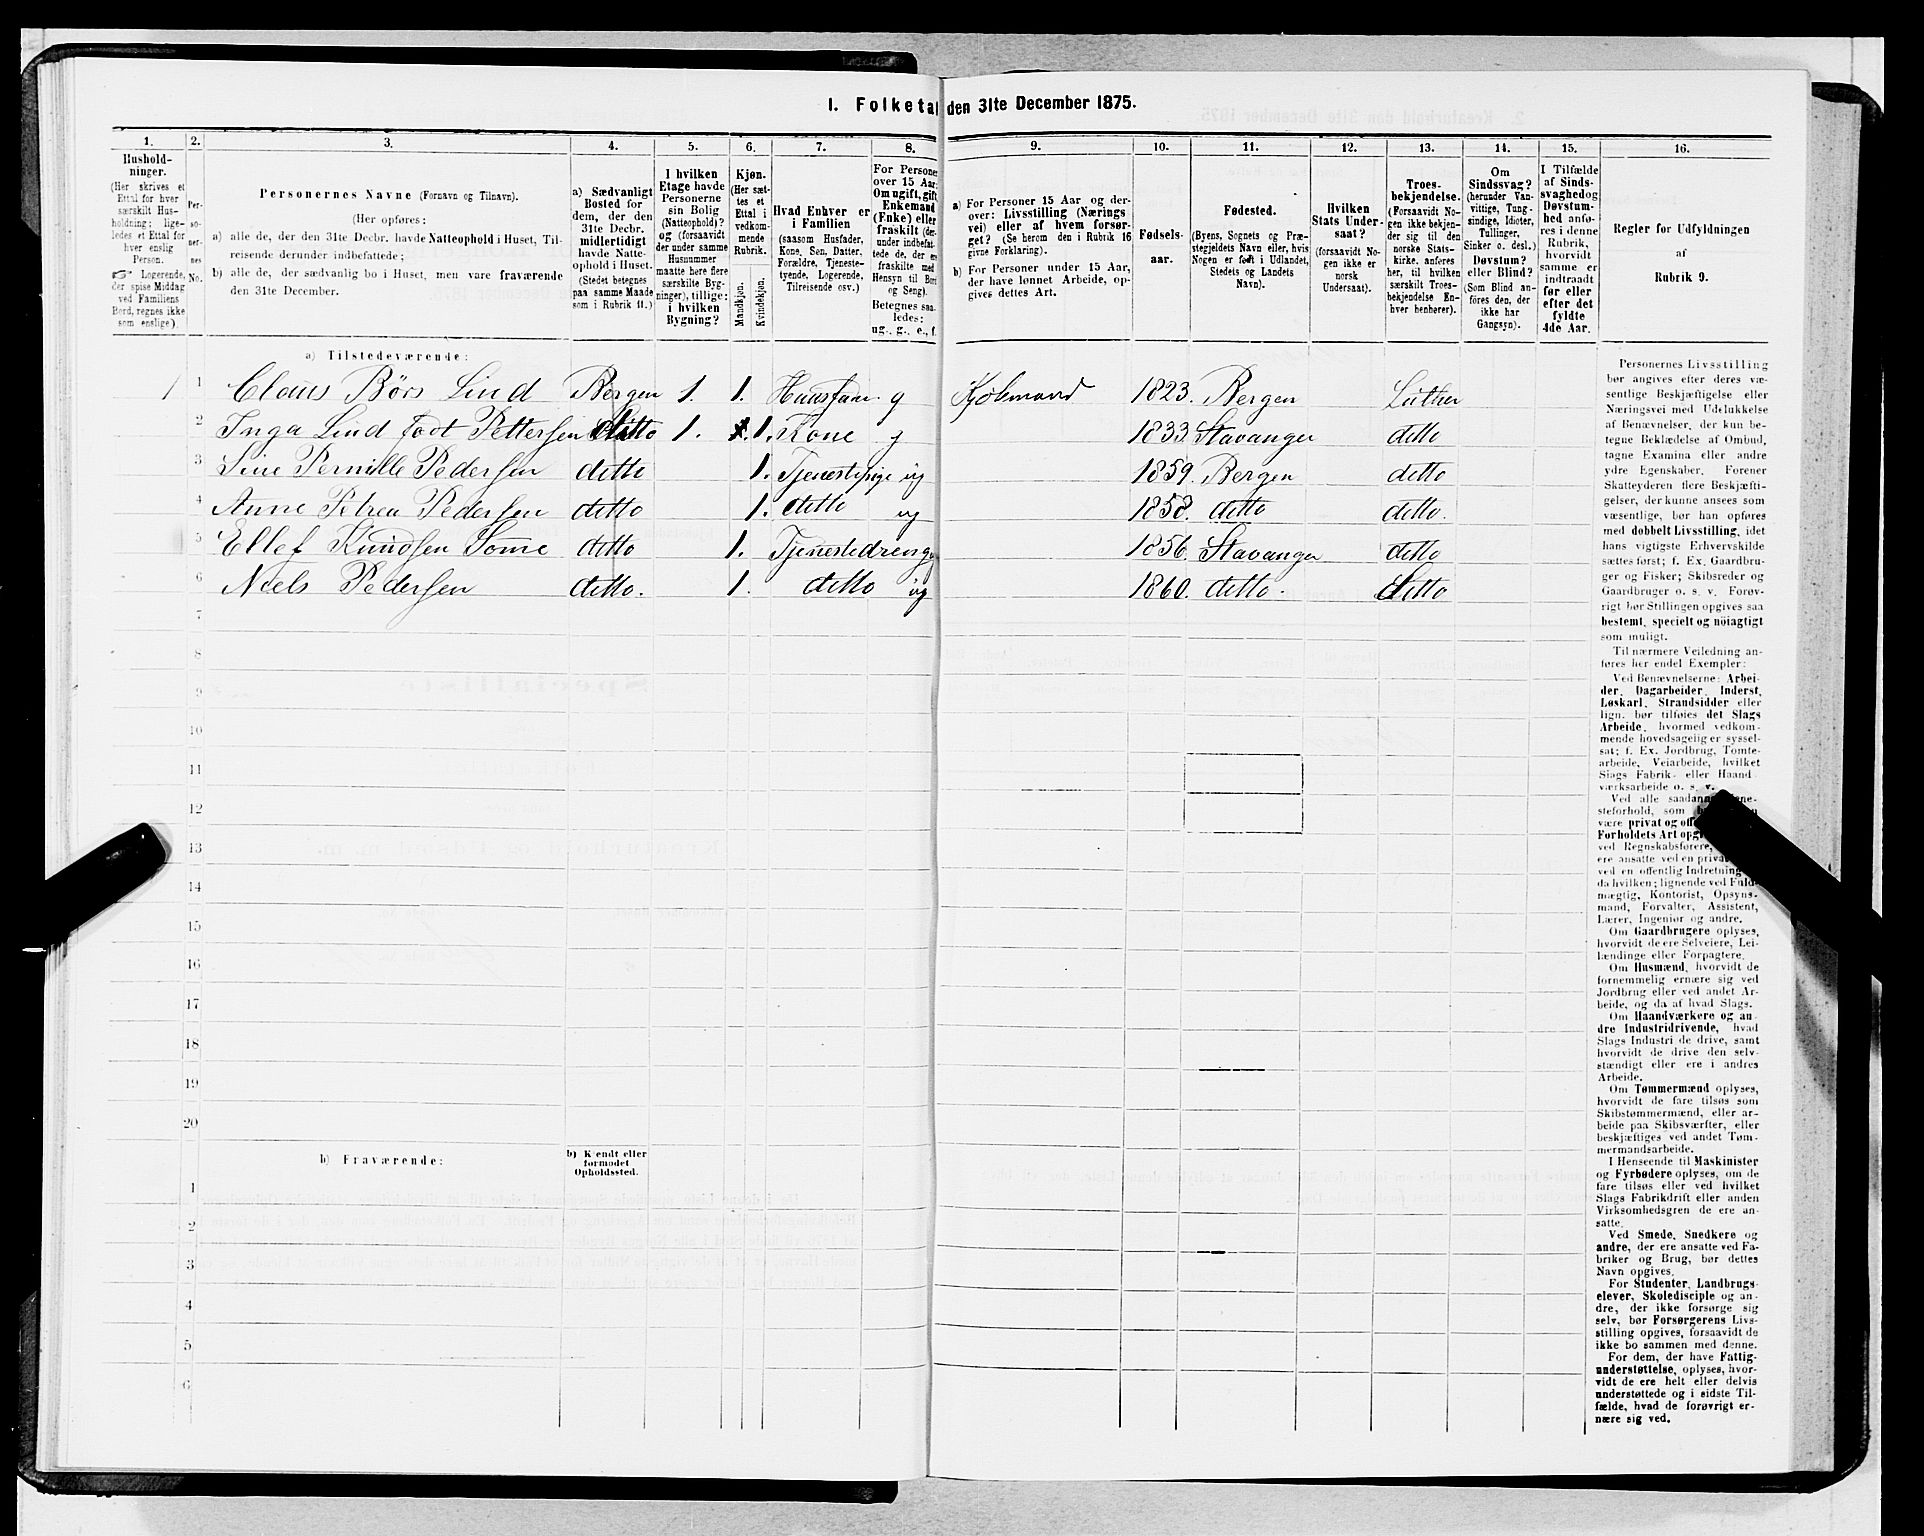 I. Folketal den 31te December 1875.
1.
Hushold-
ninger.
(Her skrives et
Ettal for hver
særskilt Hus-
holdning; lige-
ledes et Ettal for
hver enslig
Person.
☞ Logerende,
der spise Middag
ved Familiens
Bord, regnes ikke
som enslige).
2.
Per-
so-
ner-
nes
No.
3.
Personernes Navne (Fornavn og Tilnavn).
(Her opføres:
a) alle de, der den 31te Decbr. havde Natteophold i Huset, Til-
reisende derunder indbefattede;
b) alle de, der sædvanlig bo i Huset, men vare fraværende
den 31te December.
4.
a) Sædvanligt
Bosted for
dem, der den
31te Decbr.
midlertidigt
havde Natte-
ophold i Huset.
(Stedet betegnes
paa samme Maade
som i Rubrik 11.)
5.
I hvilken
Etage havde
Personerne
sin Bolig
(Natteophold)?
og (forsaavidt
der under samme
Husnummer
maatte høre flere
særskilte Byg-
ninger), tillige:
i hvilken
Bygning?
6.
Kjøn.
(Her sæt-
tes et
Ettal i
vedkom-
mende
Rubrik.
Mandkjøn.
Kvindekjøn.
7.
Hvad Enhver er
i Familien
(saasom Husfader,
Kone, Søn, Datter,
Forældre, Tjeneste-
tyende, Logerende,
Tilreisende osv.)
8.
For Personer
over 15 Aar:
Om ugift, gift,
Enkemand
(Enke) eller
fraskilt (der-
under indbefat-
tede de, der ere
fraskilte med
Hensyn til Bord
og Seng).
Betegnes saa-
ledes:
ug., g., e., f.
9.
a) For Personer 15 Aar og der-
over: Livsstilling (Nærings
vei) eller af hvem forsør-
get? (Se herom den i Rubrik 16
givne Forklaring).
b) For Personer under 15 Aar,
der have lønnet Arbeide, op-
gives dettes Art.
10.
Fødsels-
aar.
11.
Fødested.
(Byens, Sognets og Præ-
stegjeldets Navn eller, hvis
Nogen er født i Udlandet,
Stedets og Landets
Navn).
12.
Hvilken
Stats Under-
saat?
(forsaavidt No-
gen ikke er
norsk
Undersaat).
13.
Troes-
bekjendelse.
(Forsaavidt No-
gen ikke bekjen-
der sig til den
norske Stats-
kirke, anføres
her, til hvilken
særskilt Troes-
bekjendelse En-
hver henhører).
14.
Om
Sindssvag?
(herunder Van-
vittige, Tung-
sindige, Idioter,
Tullinger,
Sinker o. desl.)
Døvstum?
eller Blind?
(Som Blind an-
føres den, der
ikke har
Gangsyn).
15.
I Tilfælde
af Sinds-
svaghed og
Døvstum-
hed anfø-
res i denne
Rubrik,
hvorvidt
samme er
indtraadt
før eller
efter det
fyldte
4de Aar.
16.
Regler for Udfyldningen
af
Rubrik 9.
a) Tilstedeværende:
1 1 Claus Börs Lind Bergen 1. 1. Huusfader g Kjöbmand 1823. Bergen Luther
2 Inga Lind født Pettersen ditto 1. 1. Kone g 1833. Stavanger ditto
3 Sine Pernille Pedersen ditto 1. Tjenestpige ug 1859. Bergen ditto
4 Anne Petrea Pedersen ditto 1. ditto ug 1858. ditto ditto.
5 Ellef Knudsen Somme ditto 1. Tjenestedreng ug 1856. Stavanger ditto
6 Niels Pedersen ditto. 1. ditto ug 1860. ditto. ditto
7
8
9
10
11
12
13
14
15
16
17
18
19
20
b) Fraværende:
b) Kjendt eller
formodet
Opholdssted.
1
2
3
4
5
6
Personernes Livsstilling
bør angives efter deres væ-
sentlige Beskjæftigelse eller
Næringsvei med Udelukkelse
af Benævnelser, der kun be-
tegne Beklædelse af Ombud,
tagne Examina eller andre
ydre Egenskaber. Forener
Skatteyderen flere Beskjæfti-
gelser, der kunne ansees som
væsentlige, bør han opføres
med dobbelt Livsstilling, idet
hans vigtigste Erhvervskilde
sættes først; f. Ex. Gaardbru-
ger og Fisker; Skibsreder og
Gaardbruger o. s. v. Forøv-
rigt bør Stillingen opgives saa
bestemt, specielt og nöiagtigt
som muligt.
Til nærmere Veiledning an-
føres her endel Exempler:
Ved Benævnelserne: Arbei-
der, Dagarbeider, Inderst,
Løskarl, Strandsidder eller
lign. bør tilføies det Slags
Arbeide, hvormed vedkom-
mende hovedsagelig er syssel-
sat; f. Ex. Jordbrug, Tomte-
arbeide, Veiarbeide, hvilket
Slags Fabrik- eller Haand-
værksarbeide o. s. v.
Ved alle saadanne
steforhold, som
være privat og off
Forholdets Art opgi
ved Regnskabsførere,
ere ansatte ved en privat
ved en offentlig Indretning
da hvilken; lignende ved Fuld-
mægtig, Kontorist, Opsyns-
mand, Forvalter, Assistent,
Lærer, Ingeniør og andre.
Om Gaardbrugere oplyses,
hvorvidt de ere Selveiere, Lei-
lændinge eller Forpagtere.
Om Husmænd, hvorvidt de
fornemmelig ernære sig ved
Jordbrug eller ved andet Ar-
beide, og da af hvad Slags.
Om Haandværkere og an-
dre Industridrivende, hvad
Slags Industri de drive, samt
hvorvidt de drive den selv-
stændigt eller ere i andres
Arbeide.
Om Tømmermænd oplyses,
hvorvidt de fare tilsøs som
Skibstømmermænd, eller ar-
beide paa Skibsværfter, eller
beskjæftiges ved andet Tøm-
mermandsarbeide.
I Henseende til Maskinister
og Fyrbødere oplyses, om de
fare tilsøs eller ved hvilket
Slags Fabrikdrift eller anden
Virksomhedsgren de ere an-
satte.
Ved Smede, Snedkere og
andre, der ere ansatte ved Fa-
briker og Brug, bør dettes
Navn opgives.
For Studenter, Landbrugs-
elever, Skoledisciple og an-
dre, der ikke forsørge sig
selv, bør Forsørgerens Livs-
stilling opgives, forsaavidt de
ikke bo sammen med denne.
For dem, der have Fattig-
understøttelse, oplyses, hvor-
vidt de ere helt eller delvis
understøttede og i sidste Til-
fælde, hvad de forøvrigt er-
nære sig ved.